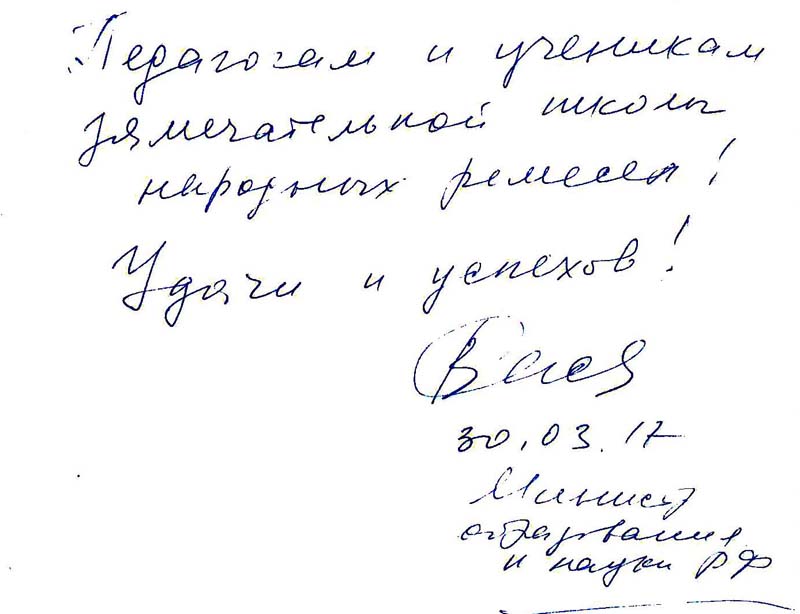 Педагогам и ученикам
замечательной школы
народных ремесел!
Удачи и успехов!
30.03.17
Министр
образования
и науки РФ